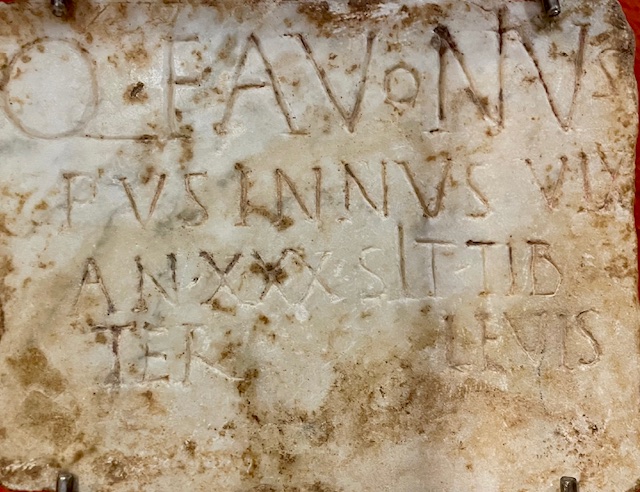 Q·FAVONIVS
PVSINNVS VIX
AN·XXX·SIT·TIB
TER LEVIS